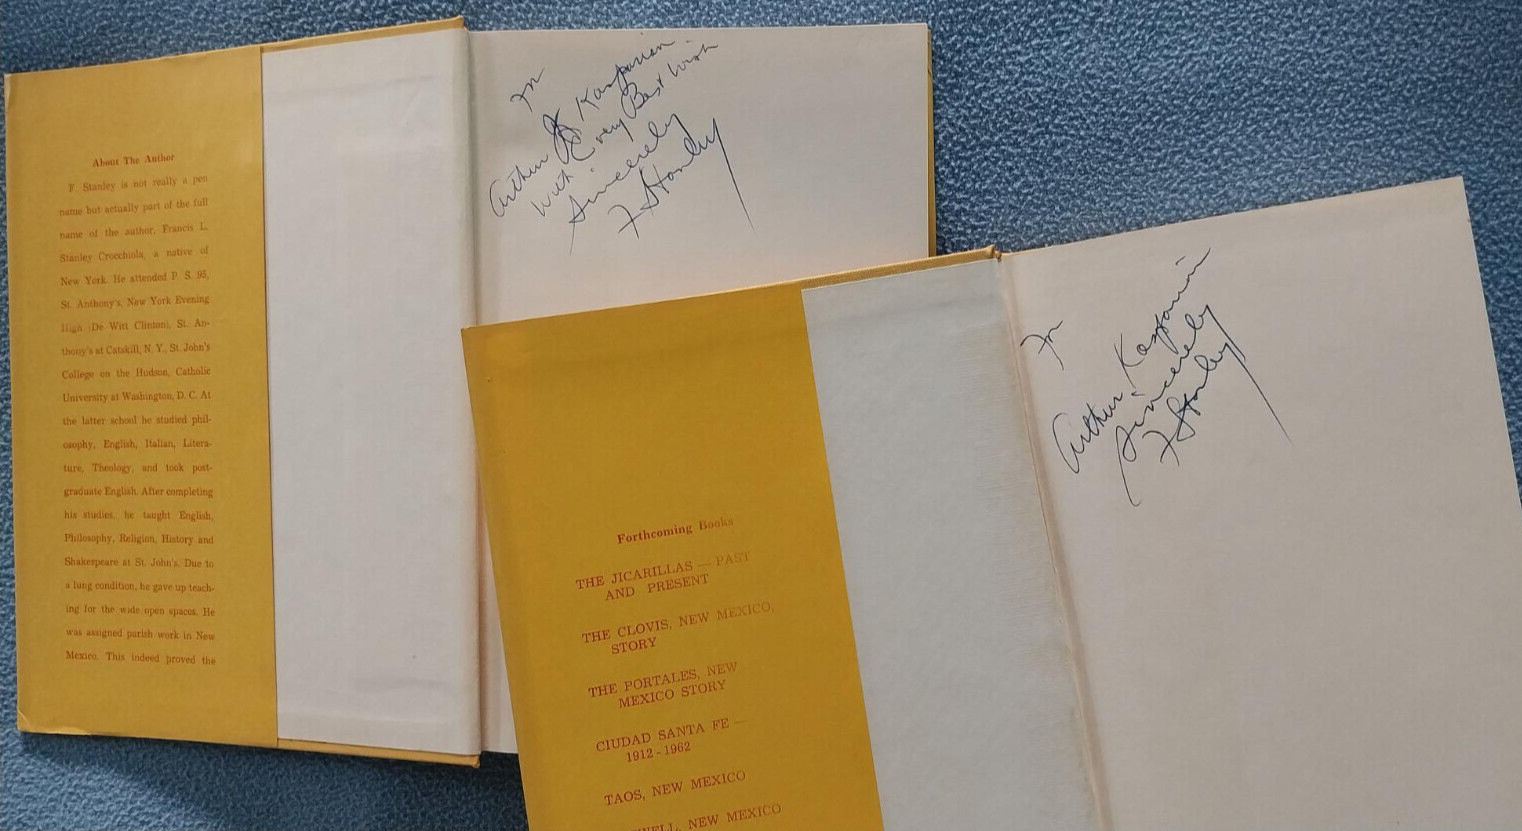 About The Author
F Stanley is not really a pen
name but actually part of the full
name of the author, Francis L.
Stanley Crocchiola, a native of
New York. He attended P. S. 95,
St. Anthony's, New York Evening
High (De Witt Clinton), St. An-
thony's at Catskill, N. Y., St. John's
College on the Hudson, Catholic
University at Washington, D. C. At
the latter school he studied phil-
osophy, English, Italian, Litera-
ture, Theology, and took post-
graduate English. After completing
his studies, he taught English,
Philosophy, Religion, History and
Shakespeare at St. John's. Due to
a lung condition, he gave up teach-
ing for the wide open spaces. He
was assigned parish work in New
Mexico. This indeed proved the
For
Arthur Kasparian
With Every Best Wish
Sincerely
F Stanley
Forthcoming Books
THE JICARILLAS — PAST
AND PRESENT
THE CLOVIS, NEW MEXICO,
STORY
THE PORTALES, NEW
MEXICO STORY
CIUDAD SANTA FE —
1912-1962
TAOS, NEW MEXICO
NEW MEXICO
For
Arthur Kasparian
Sincerely
F Stanley